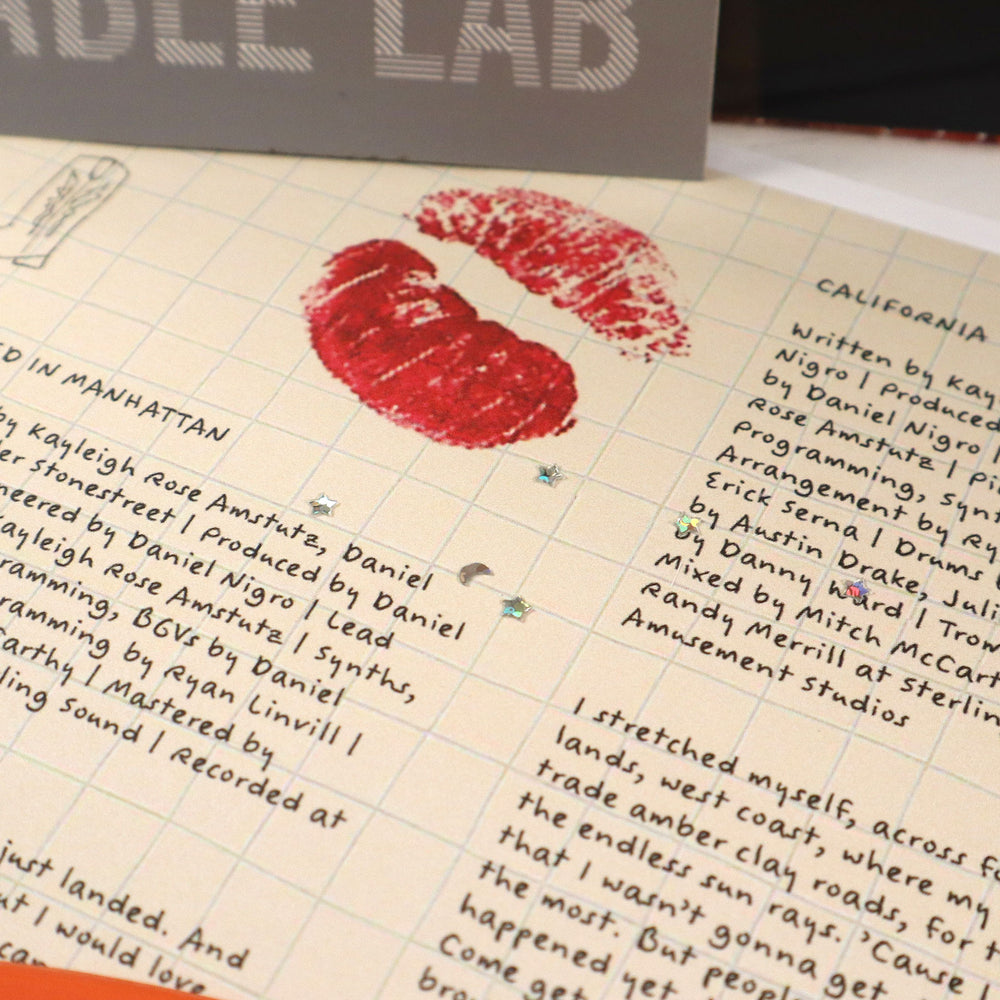 LAB
CALIFORNIA
Written by
Nigro | Produced
by Daniel Nigro |
Rose Amstutz |
Programming,
Arrangement by
Erick Serna | Drums
by Austin Drake,
by Danny Ward |
Mixed by Mitch
Randy Merrill at
Amusement Studios
I stretched myself, across
lands, west coast, where my
trade amber clay roads, for
the endless sun rays. 'Cause I
that I wasn't gonna get
the most. But
happened yet
Come get
IN MANHATTAN
by Kayleigh Rose Amstutz, Daniel
Stonestreet | Produced by Daniel
by Daniel Nigro | Lead
Rose Amstutz | Synths,
BGVs by Daniel
by Ryan Linvill |
| Mastered by
Sound | Recorded at
just landed. And
I would love